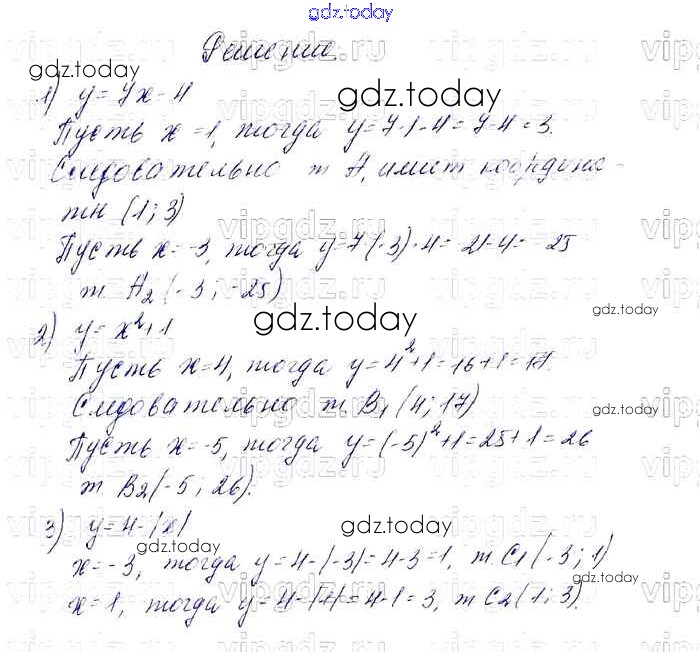 gdz.today
Решение
gdz.today
1) y=7x-4
gdz.today
Пусть x=1, тогда y=7·1-4=7-4=3.
Следовательно т A₁ имеет координа-
ты (1; 3)
Пусть x=-3, тогда y=7(-3)-4=-21-4=-25
т. A₂ (-3; -25)
gdz.today
2) y=x²+1
gdz.today
Пусть x=4, тогда y=4²+1=16+1=17.
Следовательно т. B₁ (4; 17)
gdz.today
Пусть x=-5, тогда y=(-5)²+1=25+1=26
т. B₂(-5; 26).
3) y=4-|x|
gdz.today
gdz.today
x=-3, тогда y=4-|-3|=4-3=1, т. C₁(-3; 1)
gdz.today
x=1, тогда y=4-|1|=4-1=3, т C₂(1; 3).